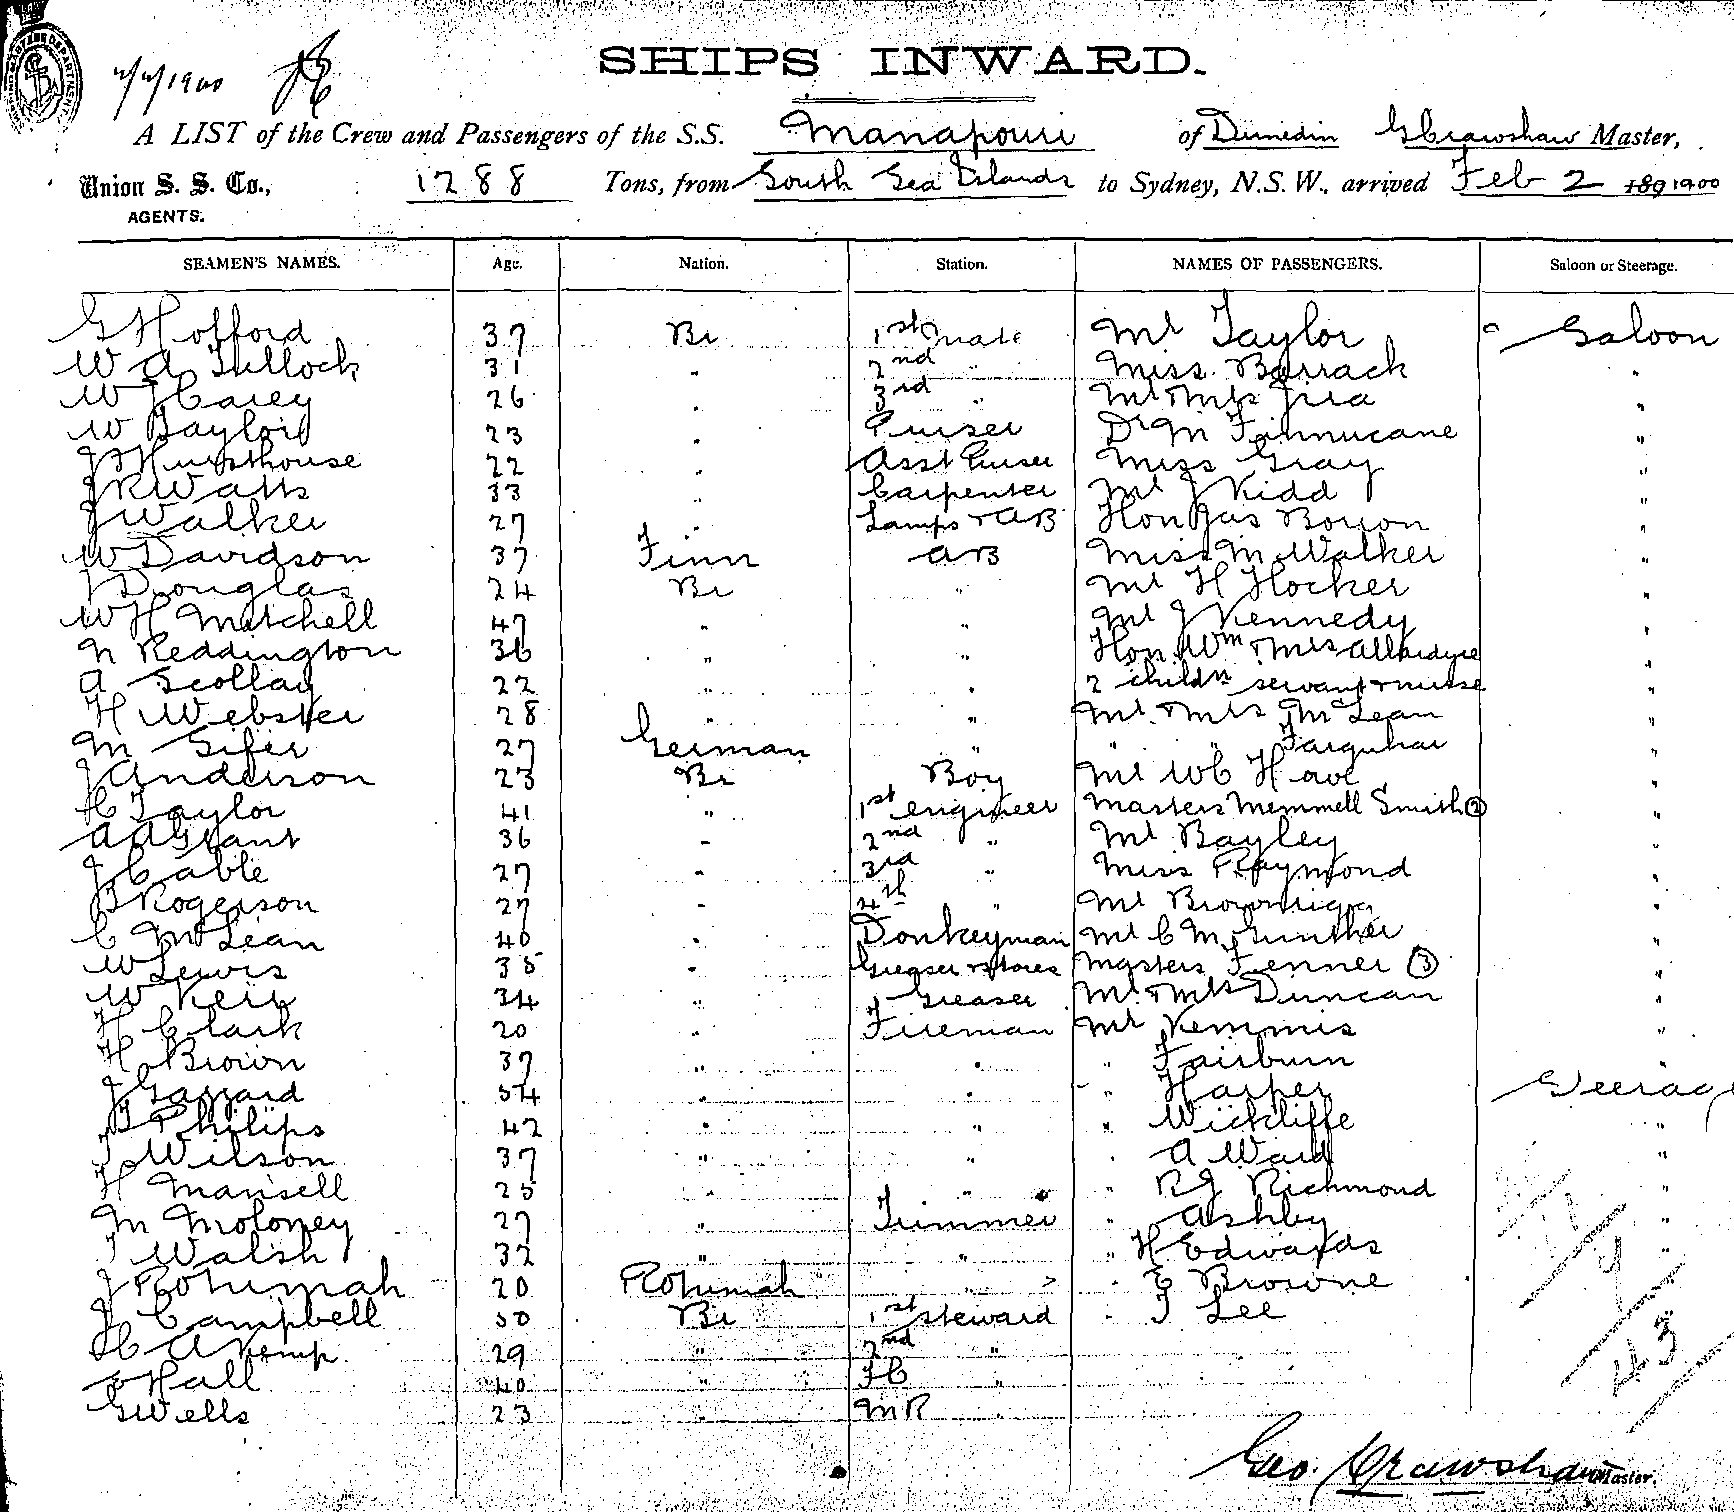 2/2/1900
SHIPS INWARD.
A LIST of the Crew and Passengers of the S.S. Manapouri of Dunedin G Crawshaw Master,
Union S. S. Co., 1288 Tons, from South Sea Islands to Sydney, N.S.W., arrived Feb 2 189 1900
AGENTS.
SEAMEN'S NAMES. Age. Nation. Station. NAMES OF PASSENGERS. Saloon or Steerage.
G Hofford 37 Br 1st mate Mr Taylor Saloon
W A Tullock 31 " 2nd " Miss Barrack "
W J Carey 26 " 3rd " Mr & Mrs "
W Baylis 23 " Purser Dr M Finnucane "
Hursthouse 22 " Asst Purser Miss Gray "
J R Watts 33 " Carpenter Mr J Kidd "
J Walker 27 " Lamps & AB Hon Jas Borron "
W Davidson 37 Finn AB Miss M Walker "
J Douglas 24 Br " Mr H Hocker "
W H Mitchell 47 " " Mr J Kennedy "
N Reddington 36 " " Hon Wm & Mrs Allardyce "
A Scollay 22 " " 2 childn servant & nurse "
H Webster 28 " " Mr & Mrs McLean "
M Sifer 27 German " " " Farquhar "
J Anderson 23 Br Boy Mr W C "
C Taylor 41 " 1st engineer Masters Memmell Smith (2) "
A A Grant 36 " 2nd " Mr Bayley "
J Cable 27 " 3rd " Miss Raymond "
Rogerson 27 " 4th " Mr Brownrigg "
C McLean 40 " Donkeyman Mr C M Gunther "
W Lewis 35 " Greaser & stores Masters Fenner (3) "
W Keir 34 " Greaser Mr & Mrs Duncan "
H Clark 20 " Fireman Mr Kemmis "
H Brown 37 " " " Fairburn "
J Gazzard 54 " " " Harper Steerage
Philips 42 " " " Wickliffe "
J Wilson 37 " " " A Ward "
H Mansell 25 " " " R J Richmond "
M Moloney 27 " Trimmer " Ashby "
J Walsh 32 " " " H Edwards "
J Rotumah 20 Rotumah " " E Browne
J Campbell 50 Br 1st steward " T Lee
C A Kemp 29 " 2nd "
Hall 40 " FC "
G Wells 23 " MR "
43
Geo. Crawshaw Master.